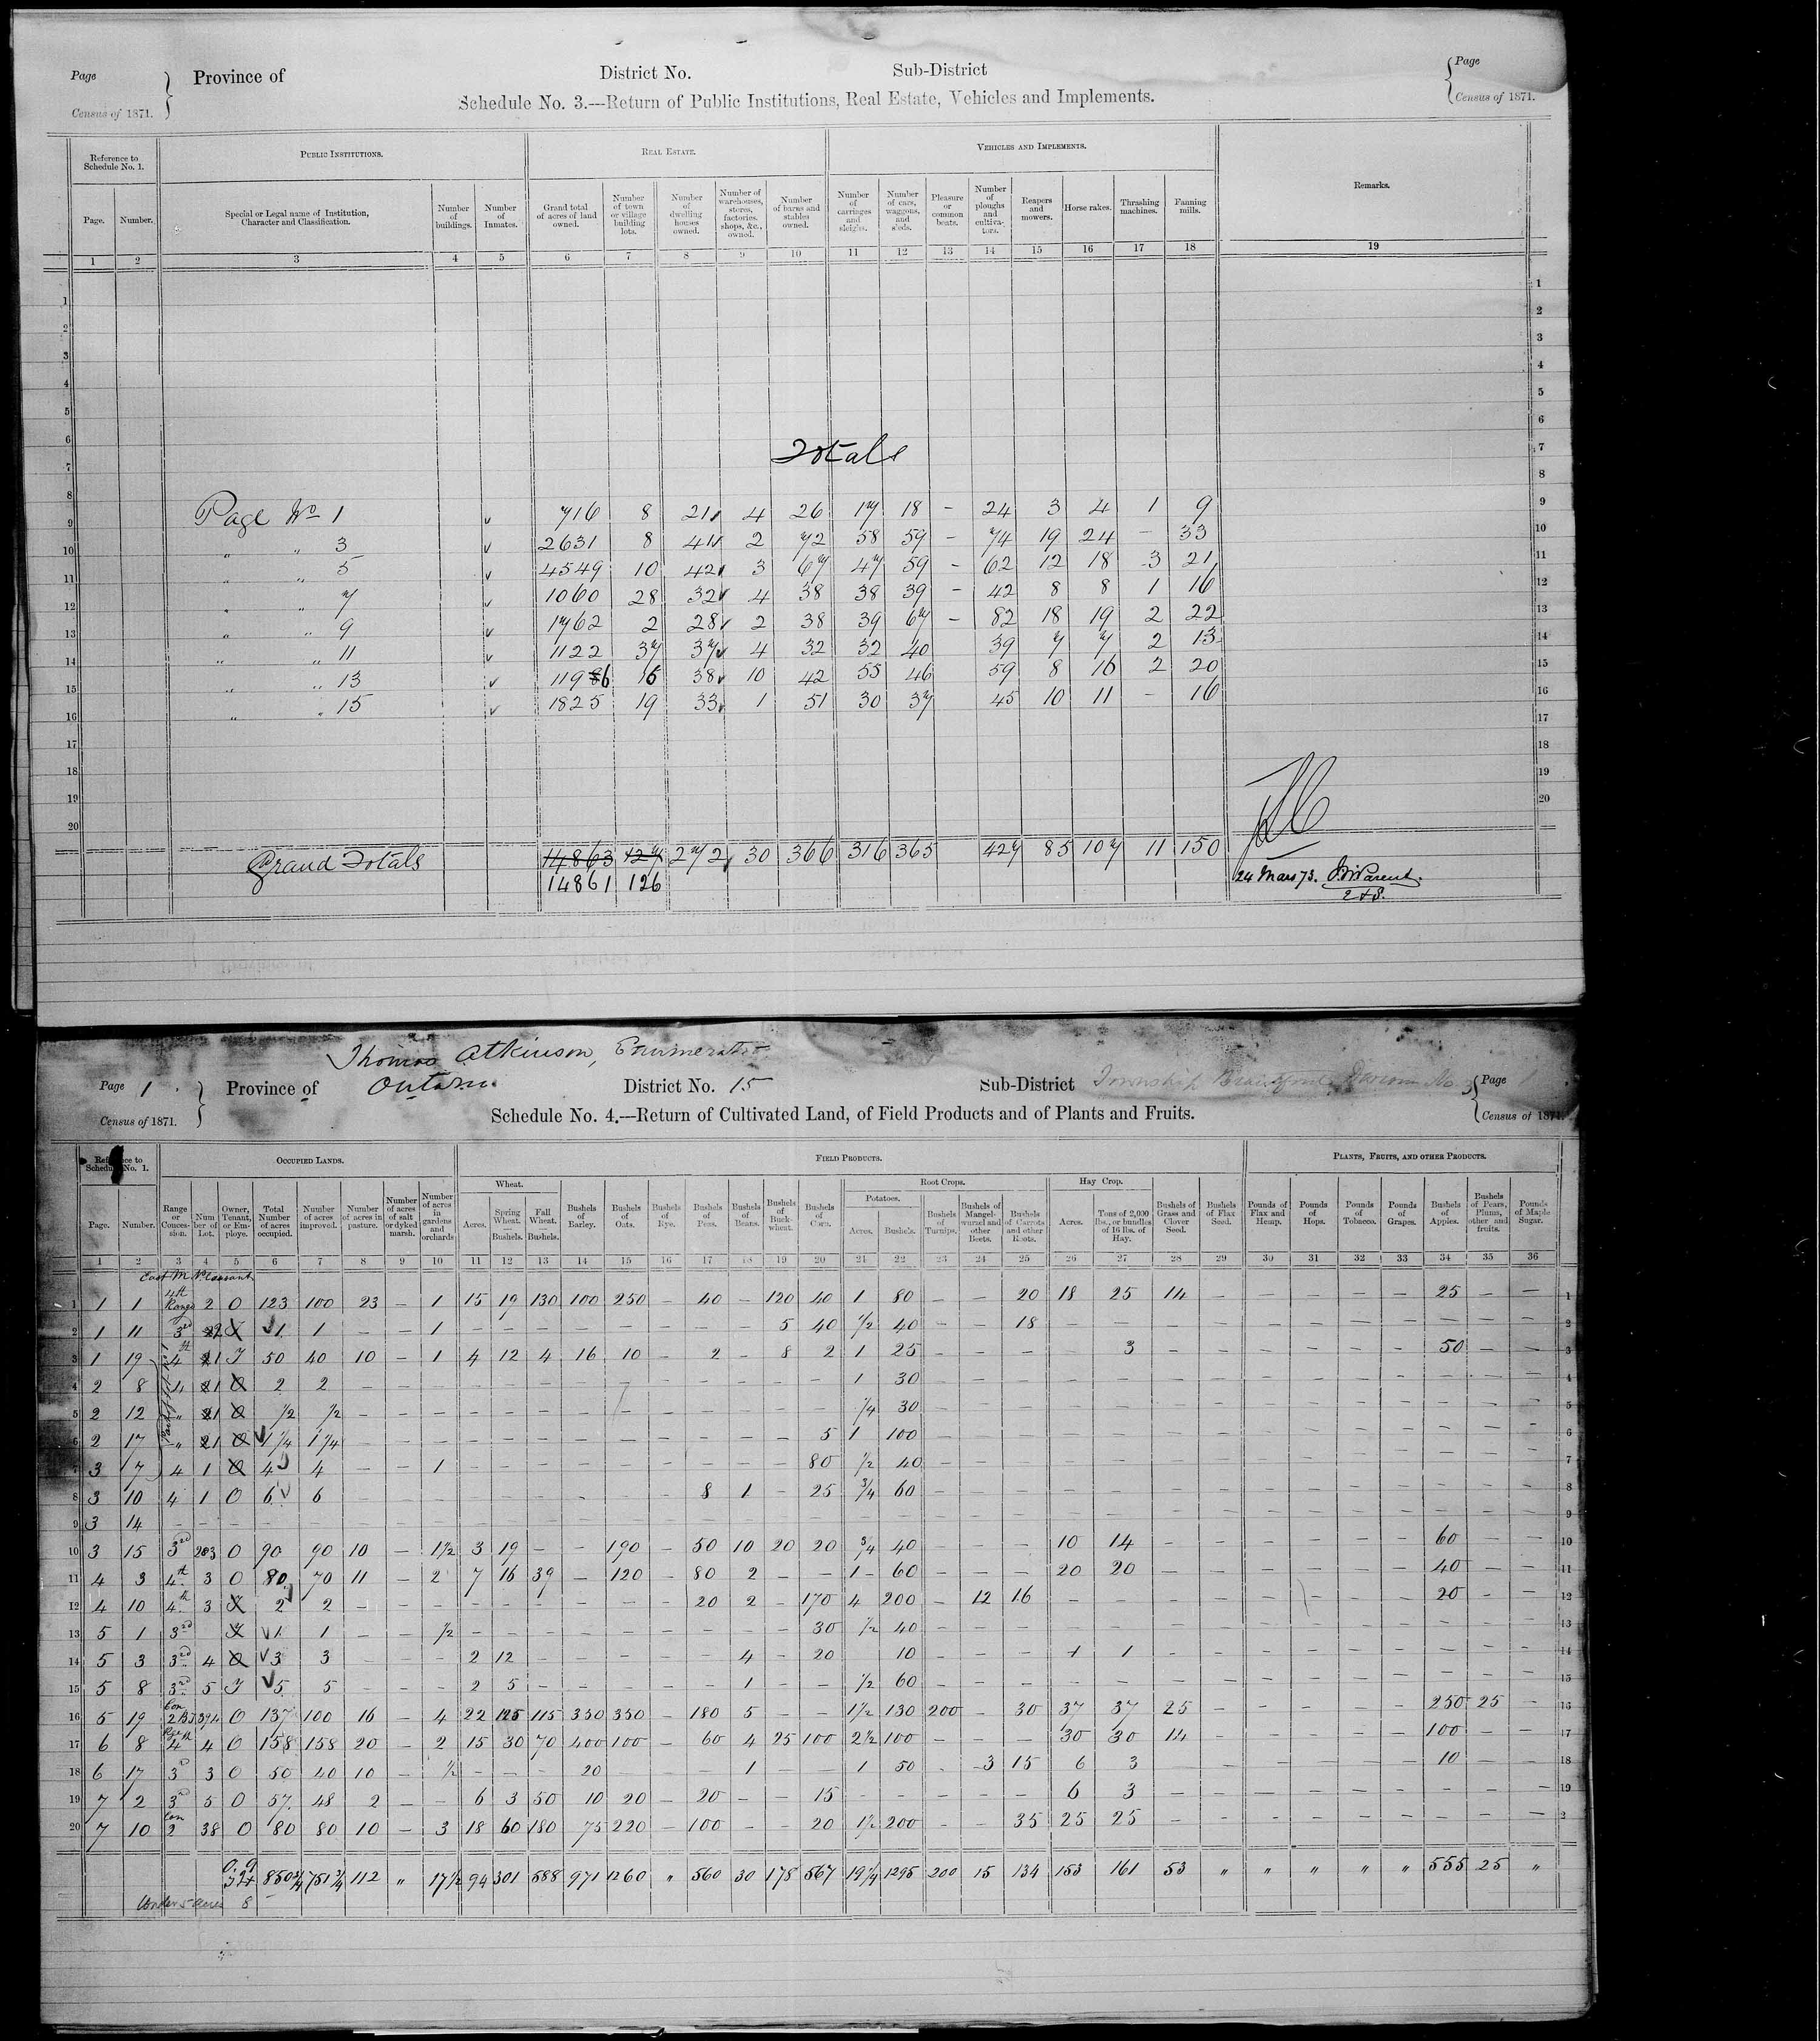 Page
Province of
District No.
Sub-District
Page
Census of 1871.
Schedule No. 3.---Return of Public Institutions, Real Estate, Vehicles and Implements.
Census of 1871.
Reference to Schedule No. 1.
Public Institutions.
Real Estate.
Vehicles and Implements.
Remarks.
Page. Number. Special or Legal name of Institution, Character and Classification. Number of buildings. Number of Inmates. Grand total of acres of land owned. Number of town or village building lots. Number of dwelling houses owned. Number of warehouses, stores, factories, shops, &c., owned. Number of barns and stables owned. Number of carriages and sleighs. Number of cars, waggons, and sleds. Pleasure or common boats. Number of ploughs and cultivators. Reapers and mowers. Horse rakes. Thrashing machines. Fanning mills.
1 2 3 4 5 6 7 8 9 10 11 12 13 14 15 16 17 18 19
Totals
Page No 1 716 8 21 4 26 17 18 - 24 3 4 1 9
" " 3 2631 8 41 2 72 58 59 - 74 19 24 - 33
" " 5 4549 10 42 3 67 47 59 - 62 12 18 3 21
" " 7 1060 28 32 4 38 38 39 - 42 8 8 1 16
" " 9 1762 2 28 2 38 39 67 - 82 18 19 2 22
" " 11 1122 37 37 4 32 32 40 39 7 7 2 13
" " 13 1196 38 10 42 55 46 59 8 16 2 20
" " 15 1825 19 33 1 51 30 37 45 10 11 - 16
Grand Totals 14863 127 272 30 366 316 365 427 85 107 11 150
14861 126
24 Mars 73.
Thomas Atkinson, Enumerator
Page 1
Province of Ontario
District No. 15
Sub-District Township Brantford Division No. 3
Page 1
Census of 1871.
Schedule No. 4.---Return of Cultivated Land, of Field Products and of Plants and Fruits.
Census of 1871.
Reference to Schedule No. 1.
Occupied Lands.
Field Products.
Plants, Fruits, and other Products.
Wheat.
Root Crops.
Hay Crop.
Potatoes.
Page. Number. Range or Concession. Number of Lot. Owner, Tenant, or Employe. Total Number of acres occupied. Number of acres improved. Number of acres in pasture. Number of acres of salt or dyked marsh. Number of acres in gardens and orchards Acres. Spring Wheat. Bushels. Fall Wheat. Bushels. Bushels of Barley. Bushels of Oats. Bushels of Rye. Bushels of Peas. Bushels of Beans. Bushels of Buckwheat. Bushels of Corn. Acres. Bushels. Bushels of Turnips. Bushels of Mangel-wurzel and other Beets. Bushels of Carrots and other Roots. Acres. Tons of 2,000 lbs., or bundles of 16 lbs. of Hay. Bushels of Grass and Clover Seed. Bushels of Flax Seed. Pounds of Flax and Hemp. Pounds of Hops. Pounds of Tobacco. Pounds of Grapes. Bushels of Apples. Bushels of Pears, Plums, and other fruits. Pounds of Maple Sugar.
1 2 3 4 5 6 7 8 9 10 11 12 13 14 15 16 17 18 19 20 21 22 23 24 25 26 27 28 29 30 31 32 33 34 35 36
East Mt Pleasant
1 1 1 4th Range 2 O 123 100 23 - 1 15 19 130 100 250 - 40 - 120 40 1 80 - - 20 18 25 14 - - - - - 25 - -
2 1 11 3rd 1 1 - - 1 - - - - - - - - 5 40 1/2 40 - - 18 - - - - - - - - - - -
3 1 19 4th 1 T 50 40 10 - 1 4 12 4 16 10 - 2 - 8 2 1 25 - - - 3 - - - - - - 50 - -
4 2 8 4 1 O 2 2 - - - - - - - - - - - - - 1 30 - -
5 2 12 " 1 O 1/2 1/2 - - - - - - - - - - - - - 1/4 30 - -
6 2 17 " 1 O 1 1/4 1 1/4 - - - - - - - - - - - - 5 1 100 - -
7 3 7 4 1 O 4 4 - - 1 - - - - - - - - - 80 1/2 40 - -
8 3 10 4 1 O 6 6 - - - - - - - - - 8 1 - 25 3/4 60 - -
9 3 14 - - - - - - - -
10 3 15 3rd 2&3 O 90 90 10 - 1 1/2 3 19 - - 190 - 50 10 20 20 3/4 40 - - - 10 14 - - - - - - 60 - -
11 4 3 4th 3 O 80 70 11 - 2 7 16 39 - 120 - 80 2 - - 1 60 - - - 20 20 - - - - - - 40 - -
12 4 10 4th 3 2 2 - - - - - - - - - 20 2 - 170 4 200 - 12 16 - - - - - - - - 20 - -
13 5 1 3rd 1 1 - - 1/2 - - - - - - - - - 30 1/2 40 - -
14 5 3 3rd 4 O 3 3 - - - 2 12 - - - - - 4 - 20 10 - - - 1 - -
15 5 8 3rd 5 T 5 5 - - - 2 5 - - - - - 1 - - 1/2 60 - -
16 5 19 Con 2 O 137 100 16 - 4 22 125 115 350 350 - 180 5 - - 1 1/2 130 200 - 30 37 37 25 - - - - - 250 25 -
17 6 8 4th 4 O 158 158 20 - 2 15 30 70 400 100 - 60 4 25 100 2 1/2 100 - - - 30 30 14 - - - - - 100 - -
18 6 17 3rd 3 O 50 40 10 - 1/2 - - - 20 - - - 1 - - 1 50 - 3 15 6 3 - - - - - - 10 - -
19 7 2 3rd 5 O 57 48 2 - - 6 3 50 10 20 - 20 - - 15 - - - - - 6 3 - - - - - - - - -
20 7 10 Con 2 38 O 80 80 10 - 3 18 60 180 75 220 - 100 - - 20 1 1/2 200 - - 35 25 25 - - - - - - - - -
850 3/4 751 3/4 112 " 17 1/2 94 301 588 971 1260 " 560 30 178 567 19 1/4 1295 200 15 134 153 161 53 " " " " " 555 25 "
Under 5 acres 8